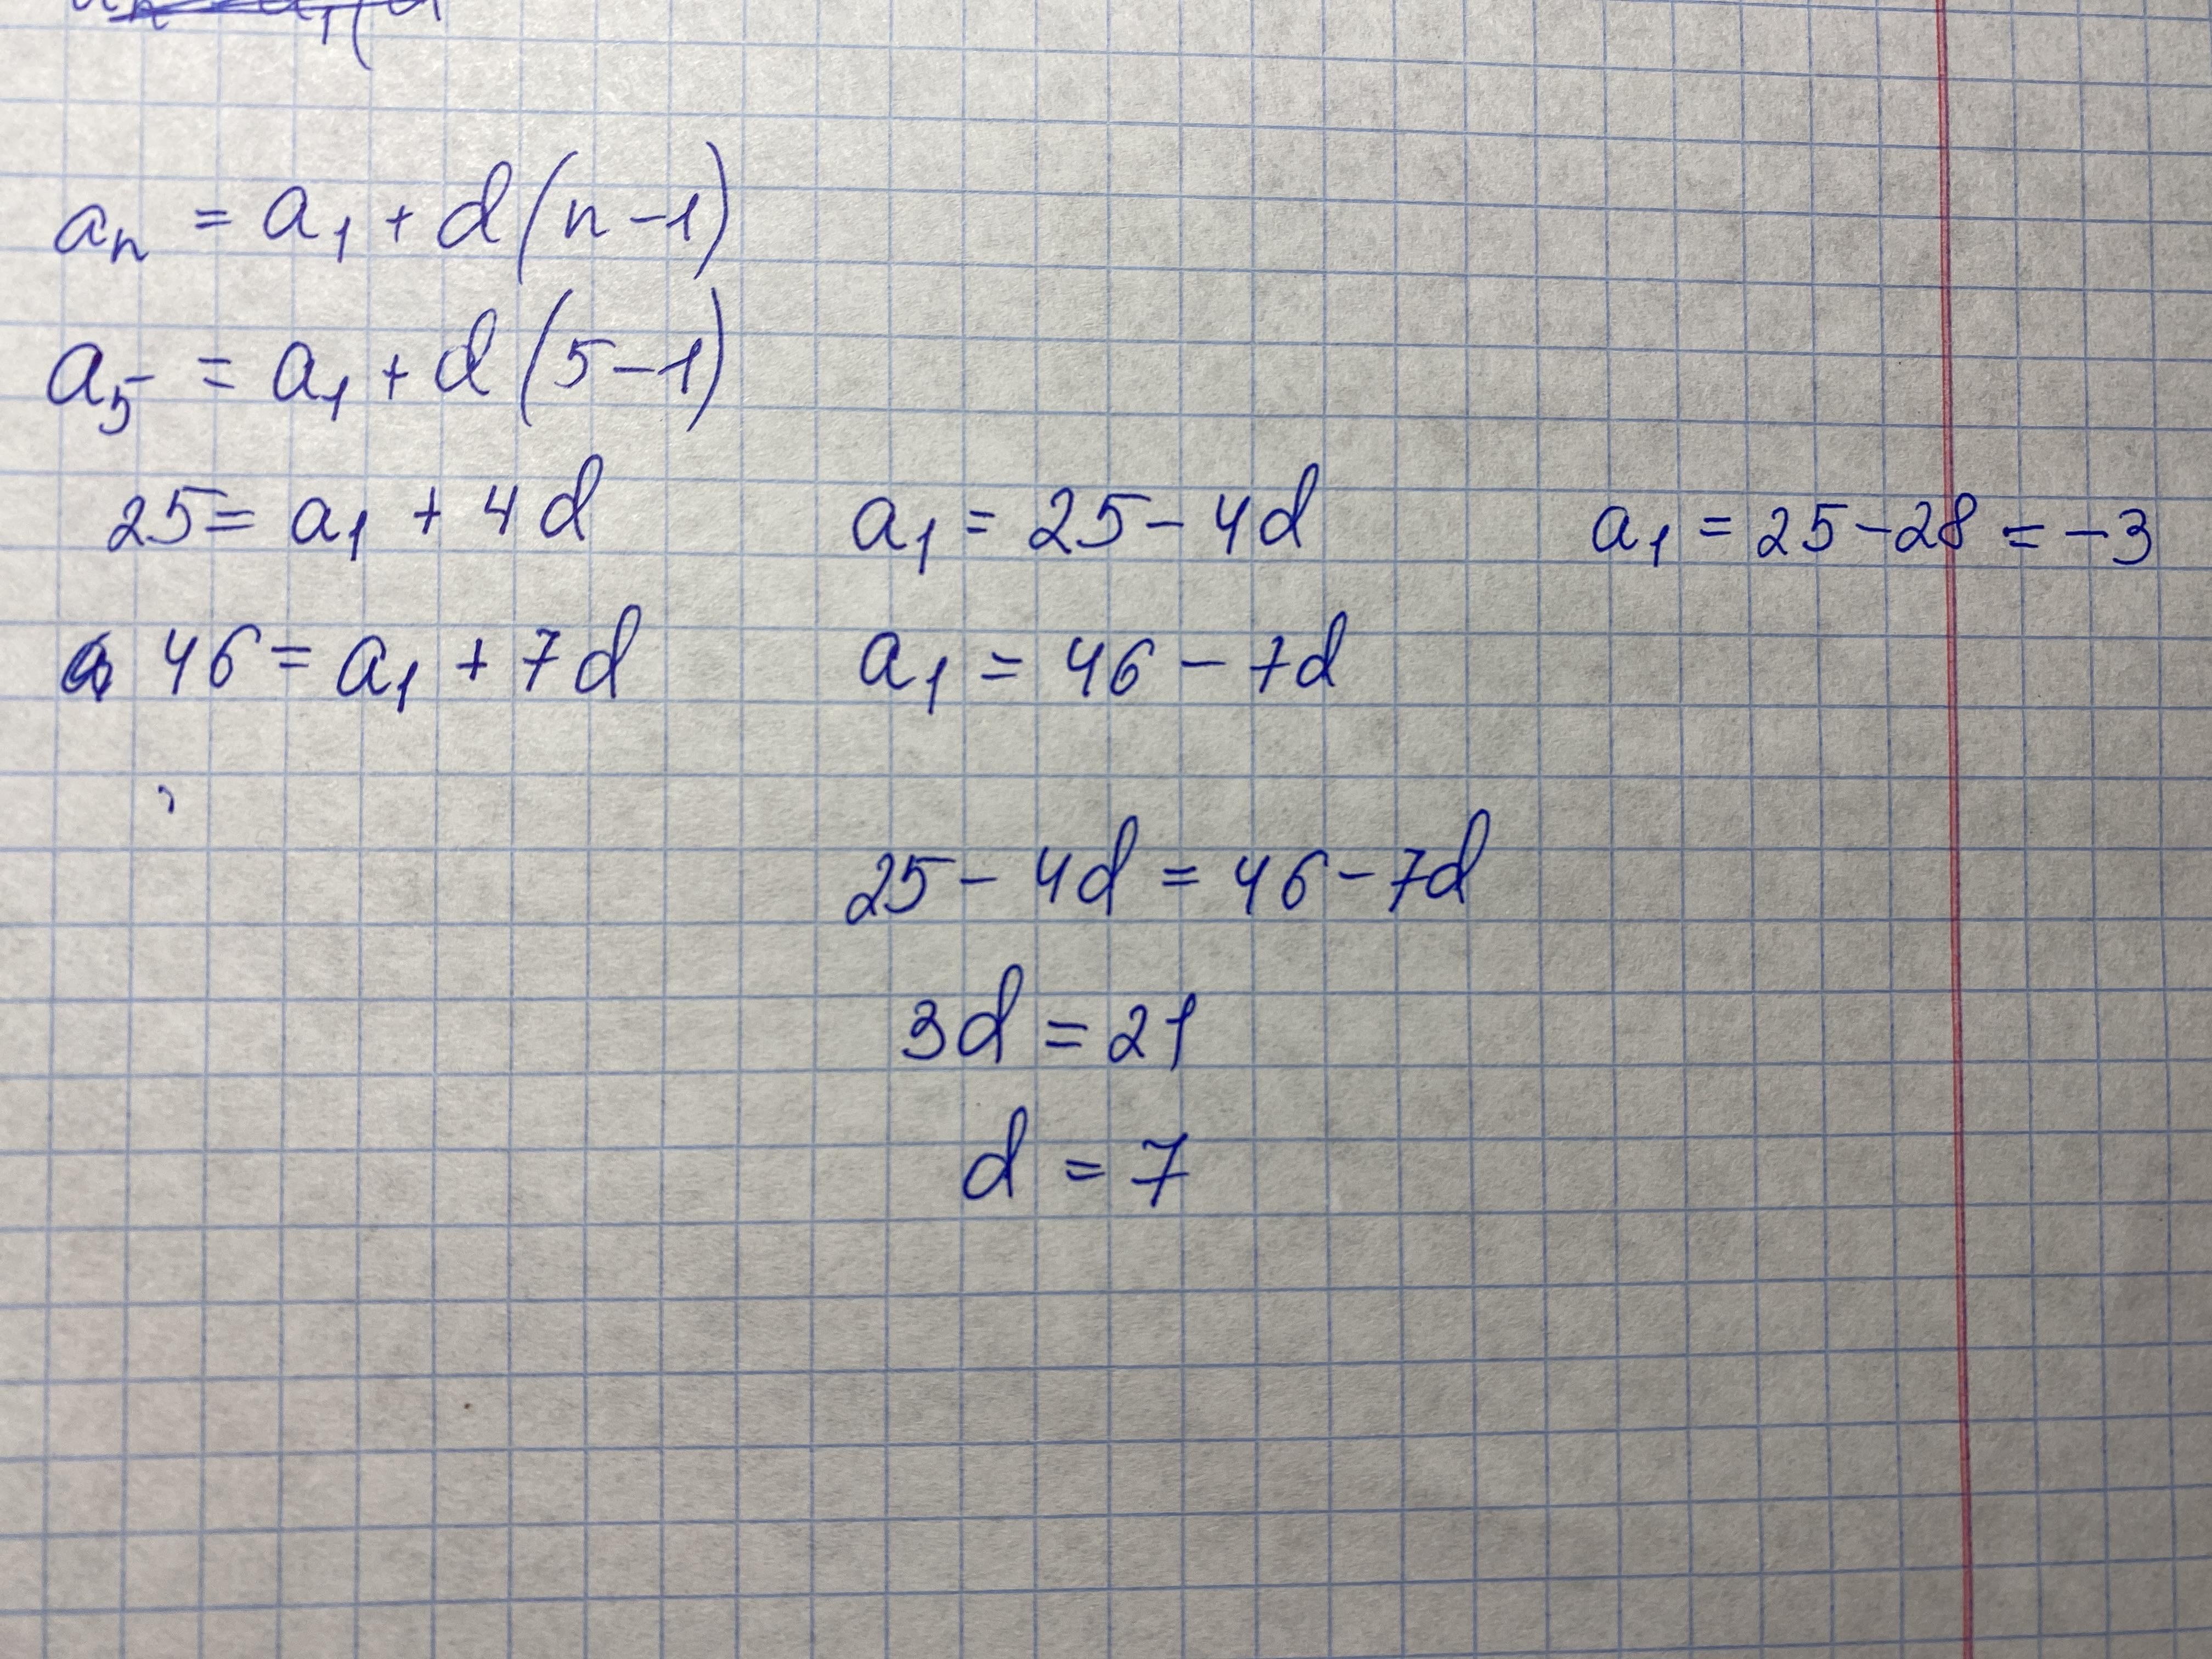 aₙ = a₁ + d(n-1)
a₅ = a₁ + d(5-1)
25 = a₁ + 4d
a₁ = 25 - 4d
a₁ = 25 - 28 = -3
46 = a₁ + 7d
a₁ = 46 - 7d
25 - 4d = 46 - 7d
3d = 21
d = 7